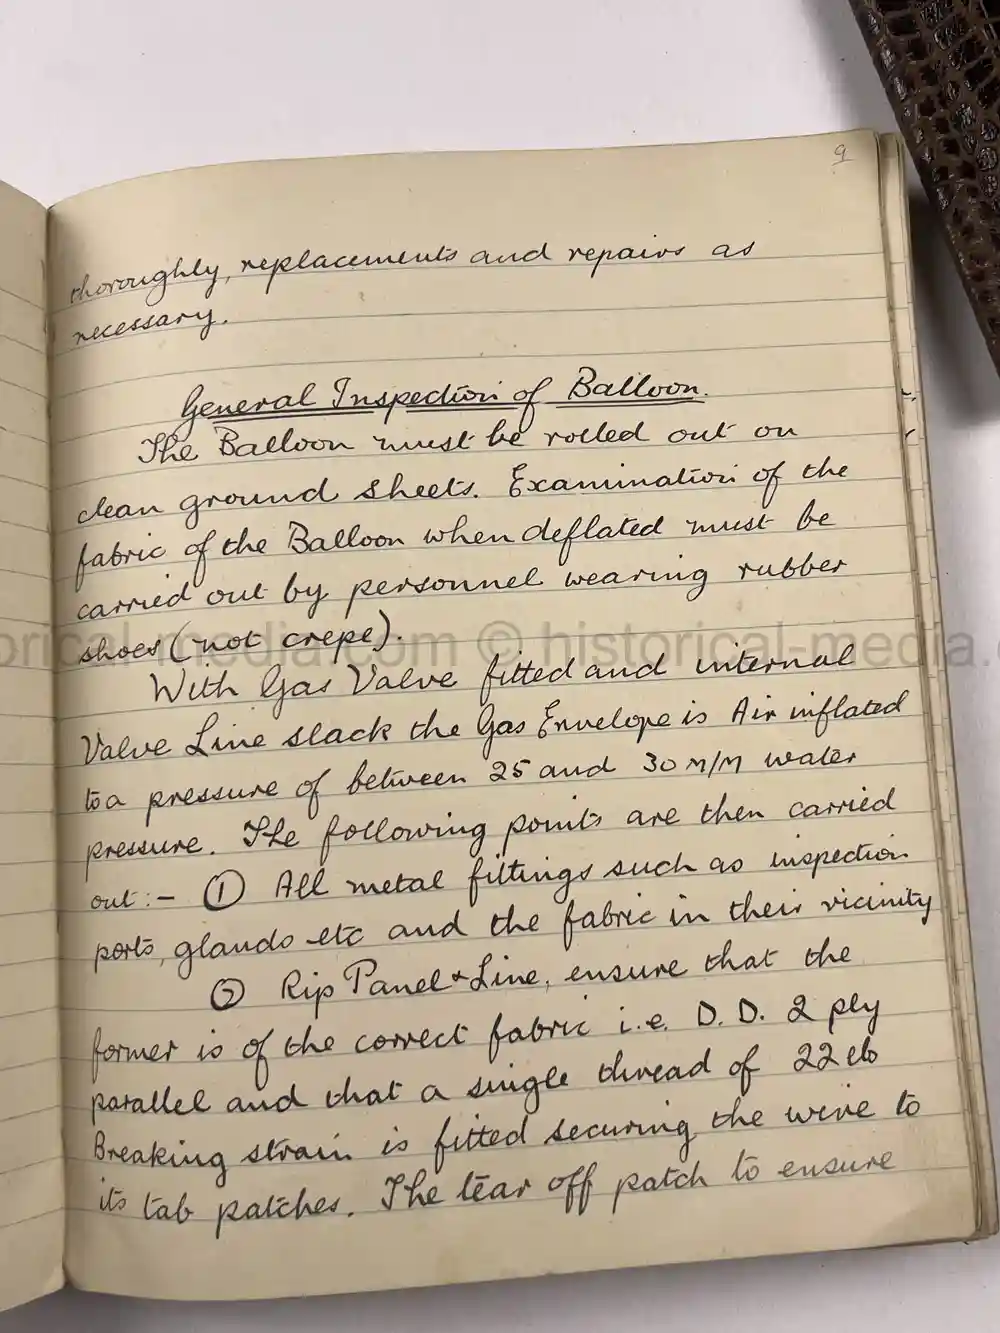 9
thoroughly, replacements and repairs as
necessary.
General Inspection of Balloon.
The Balloon must be rolled out on
clean ground sheets. Examination of the
fabric of the Balloon when deflated must be
carried out by personnel wearing rubber
shoes (not crepe).
With Gas Valve fitted and internal
Valve Line slack the Gas Envelope is Air inflated
to a pressure of between 25 and 30 M/M water
pressure. The following points are then carried
out:- ① All metal fittings such as inspection
ports, glands etc and the fabric in their vicinity
② Rip Panel & Line, ensure that the
former is of the correct fabric i.e. D.D. 2 ply
parallel and that a single thread of 22 lb
Breaking strain is fitted securing the wire to
its tab patches. The tear off patch to ensure
historical-media.com © historical-media.